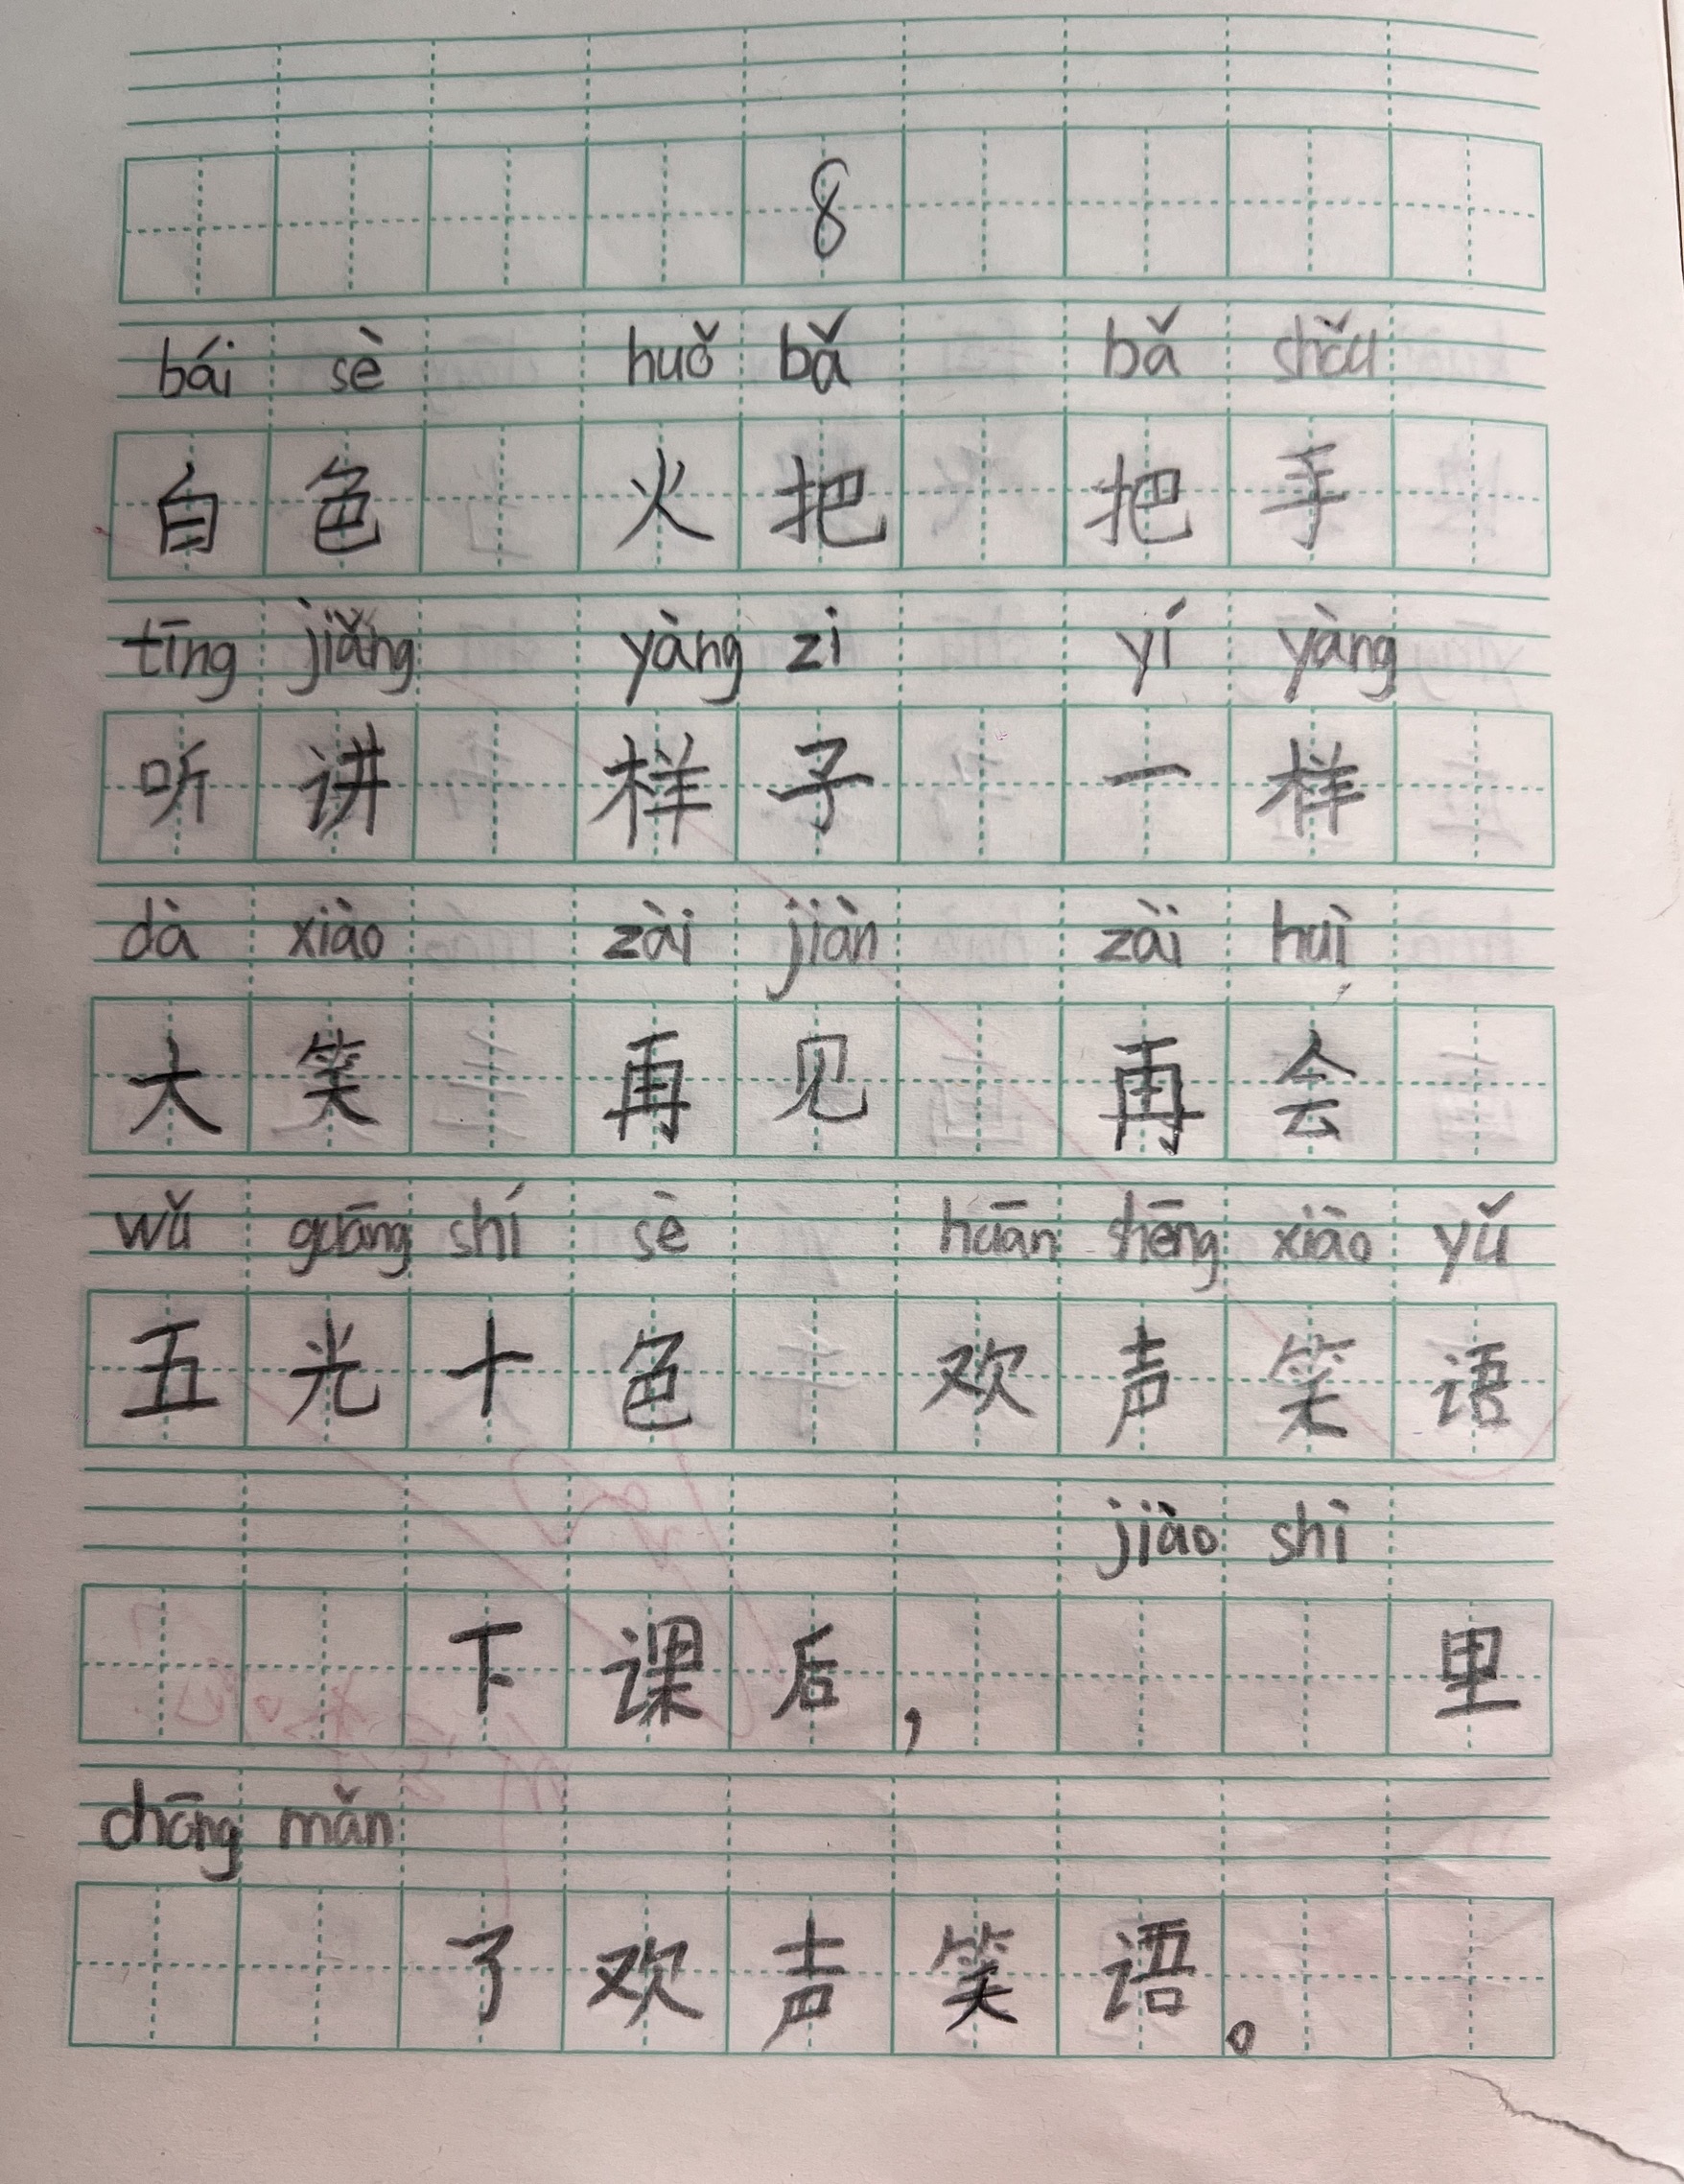 8
bái sè huǒ bǎ bǎ shǒu
白色 火把 把手
tīng jiǎng yàng zi yí yàng
听讲 样子 一样
dà xiào zài jiàn zài huì
大笑 再见 再会
wǔ guāng shí sè huān shēng xiào yǔ
五光十色 欢声笑语
jiào shì
下课后， 里
chōng mǎn
了欢声笑语。